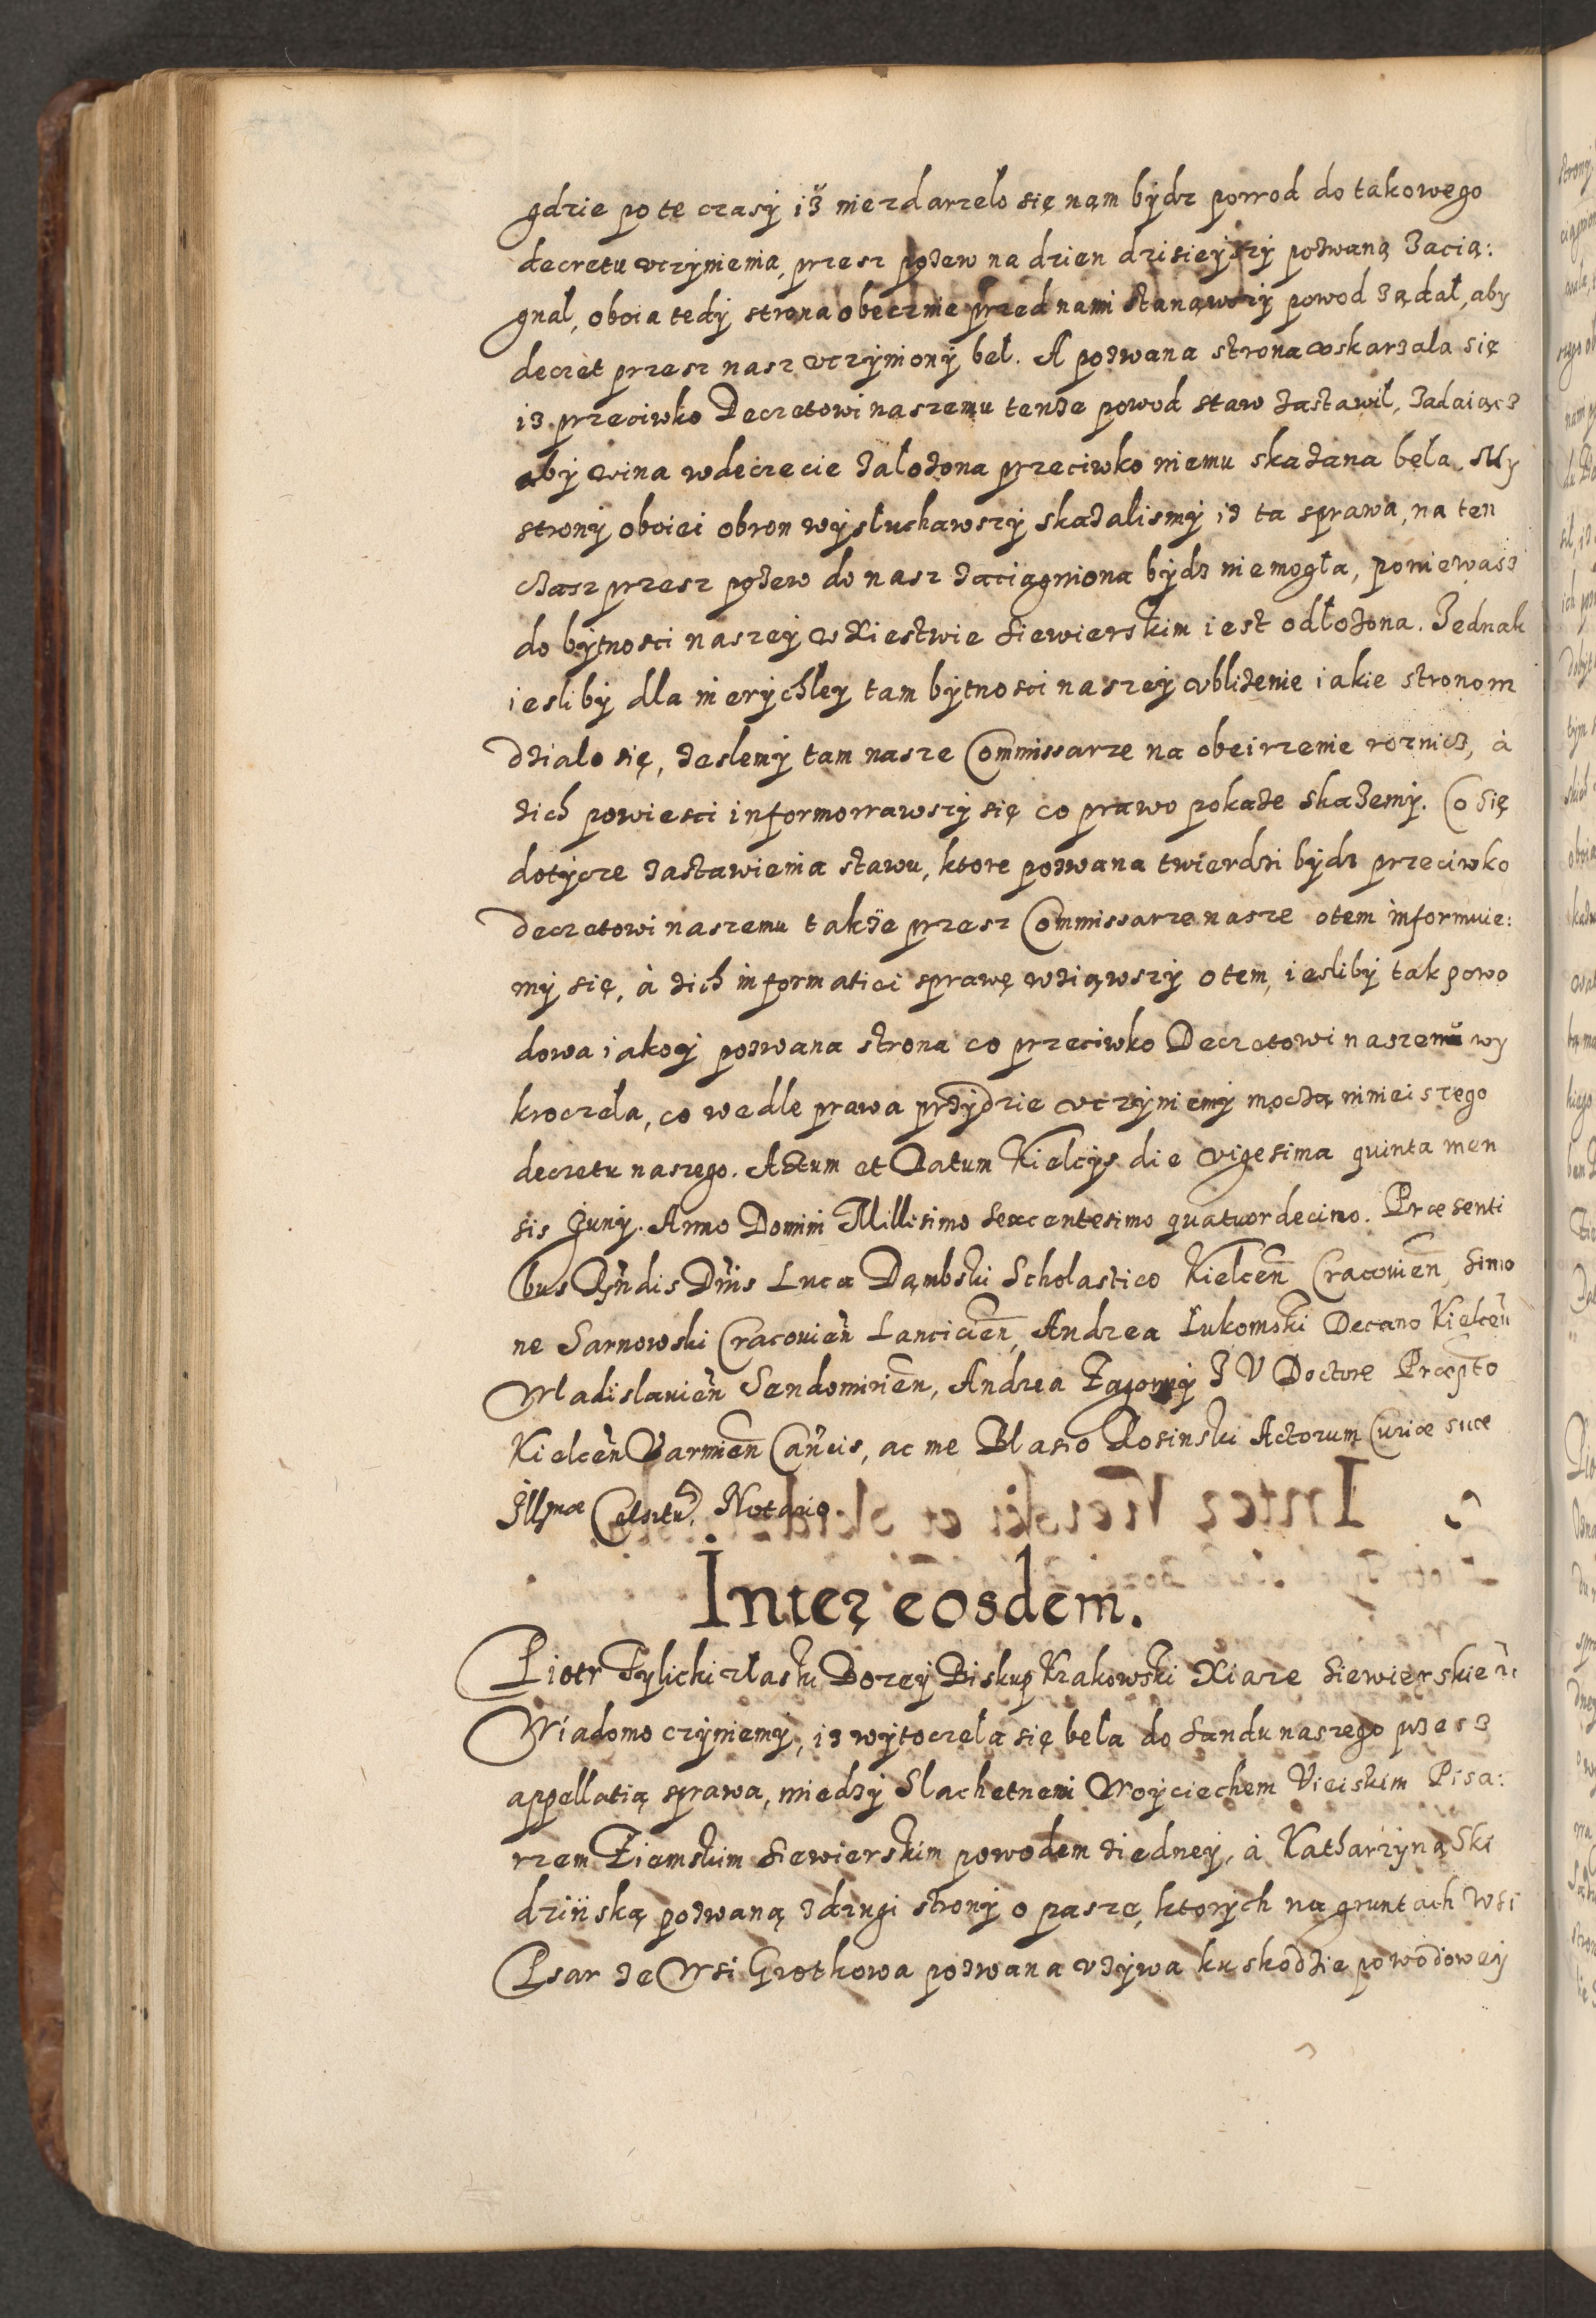 gdzie po te czasy iż niezdarzeło się nąm bydz powod do takowego
decretu vczynienia, przesz pozew na dzien dzisieyszy pozwaną zacią:
gnął, oboia tedy strona obecznie przed nami stanąwszy powod ządał, aby
decret przesz nasz vczyniony beł. A pozwana strona vskarzala się
iz przeciwko Decretowi naszemu tenze powod staw zastawił, zadaiącz
aby wina w decrecie załozona przeciwko niemu skazana beła. My
strony oboiei obron wysłuchawszy skazalismy iz ta sprawa, na ten
czasz przesz pozew do nasz zaciągniona bydz niemogła, poniewasz
do bytnosci naszey w Xiestwie Siewierskim iest odłozona. Jednak
iesliby dla nierychłey tam bytnosci naszey vblizenie iakie stronom
działo się, zeslemy tam nasze Commissarze na obeirzenie roznicz, à
zich powiesci informowawszy się co prawo pokaze skazemy. Co się
dotycze zastawienia stawu, ktore pozwana twierdzi bydz przeciwko
Decretowi naszemu takze przesz Commissarze nasze otem informuie:
my się, à zich informatiei sprawę wziąwszy otem, iesliby tak powo
dowa iakoy pozwana strona co przeciwko Decretowi naszemu wy
kroczeła, co wedle prawa przydzie vczyniemy moczą ninieiszego
decretu naszego. Actum et Datum Kielcys die vigesima quinta men
sis Juny. Anno Domini Millesimo Sexcentesimo quatuordecimo. Præsenti
bus Rñdis Dñis Luca Dąmbski Scholastico Kielceñ Cracovieñ, Simo
ne Sarnowski Cracovieñ Lancicieñ, Andrea Łukomski Decano Kielceñ
Wladislavieñ Sendomirieñ, Andrea Zagorny J V Doctore Præpto
Kielceñ Varmieñ Cañcis, ac me Blasio Rosinski Actorum Curiæ suæ
Illmæ Celsitu. Notario
Inter eosdem.
Piotr Tylicki złaski Bozey Biskup Krakowski Xiąze Siewierskie
Wiadomo czyniemy, iz wytoczeła się beła do Sandu naszego przesz
appellatią sprawa, miedzy Slachetnemi Woyciechem Vieiskim Pisa:
rzem Ziemskim Siewierskim powodem ziedney, à Katharzyną Ski
dzińską pozwaną zdrugi strony o paszę, ktorych na gruntach wsi
Psar ze Wsi Grotkowa pozwana vzywa ku skodzie powodowey